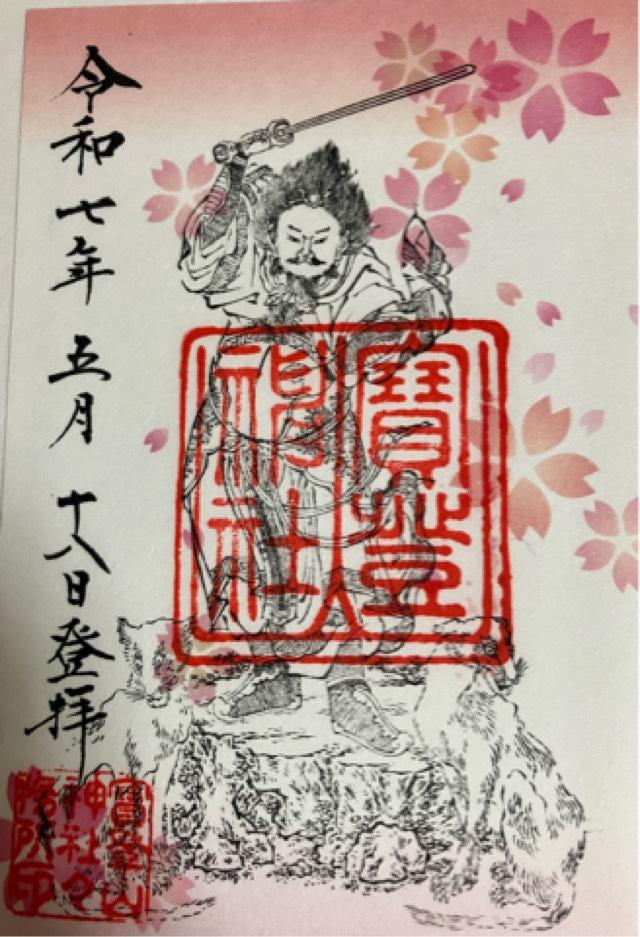 令和七年五月十八日登拝
寶登山
神社
寶登山
神社々
務所印